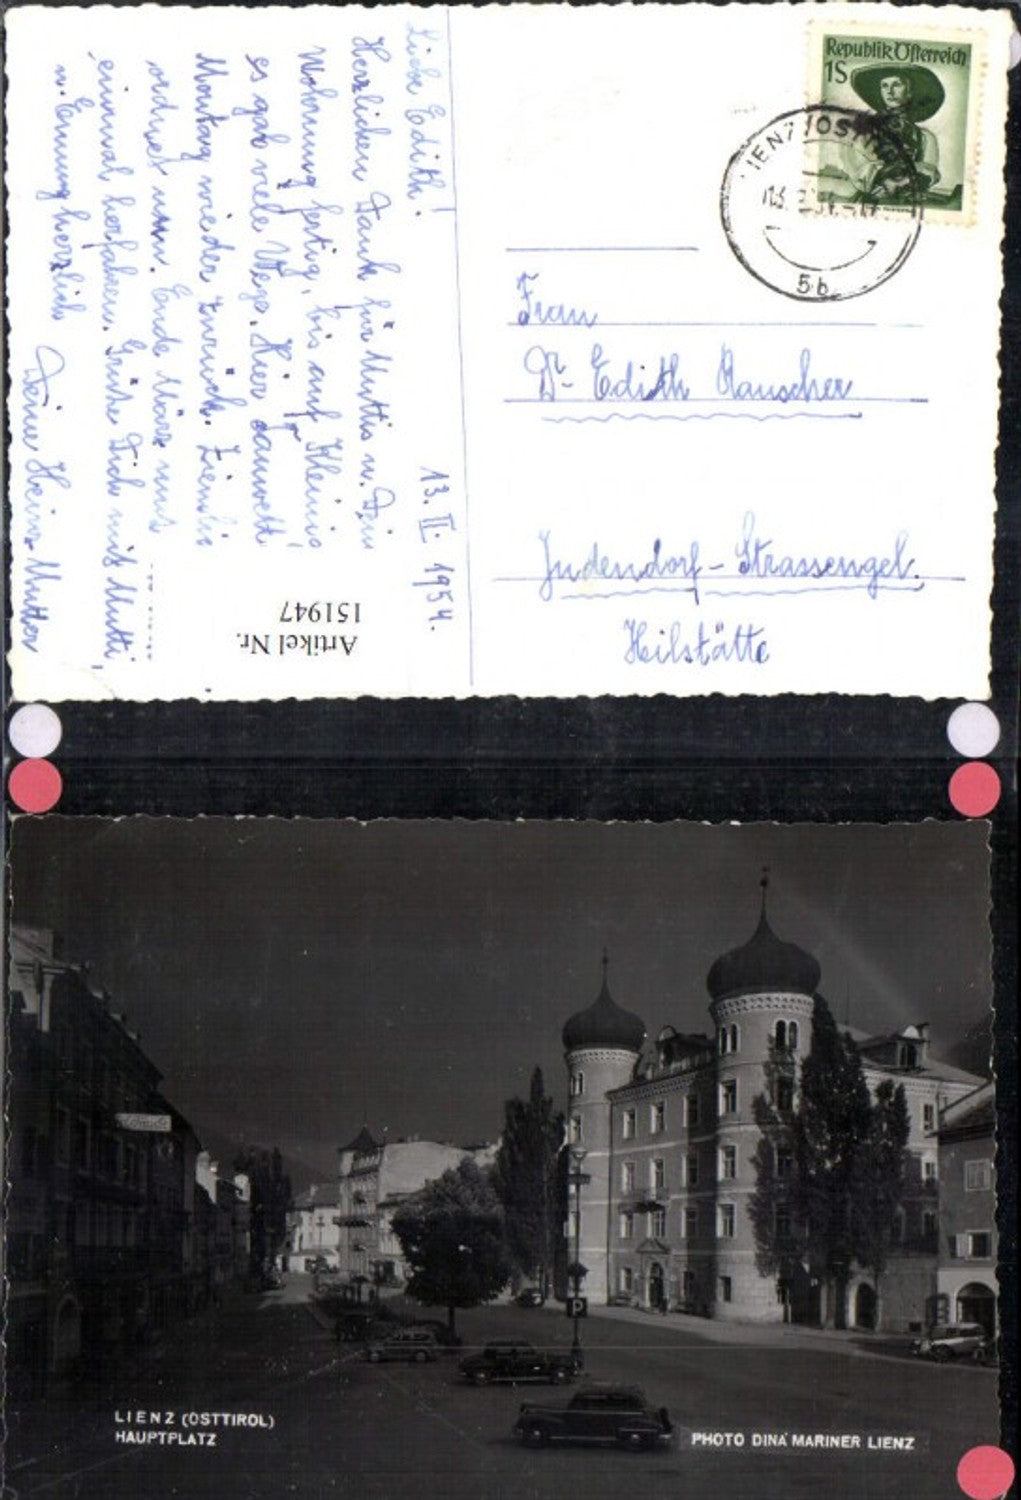 Liebe Edith!
13. II. 1954.
Herzlichen Dank für Muttis u. Dein
Wohnung fertig, bis auf Kleinig
es gab viele Wege. Hier
Montag wieder zurück.
ordnet man. Ende März
einmal herfahren. Grüße Dich mit Mutti,
u. Emmy herzlich
Deine Heinz-Mutter
Artikel Nr.
151947
Republik Österreich
1S
LIENZ (OST
5b
Frau
Dr. Edith Rauscher
Judendorf - Strassengel.
Heilstätte
P
LIENZ (OSTTIROL)
HAUPTPLATZ
PHOTO DINA MARINER LIENZ